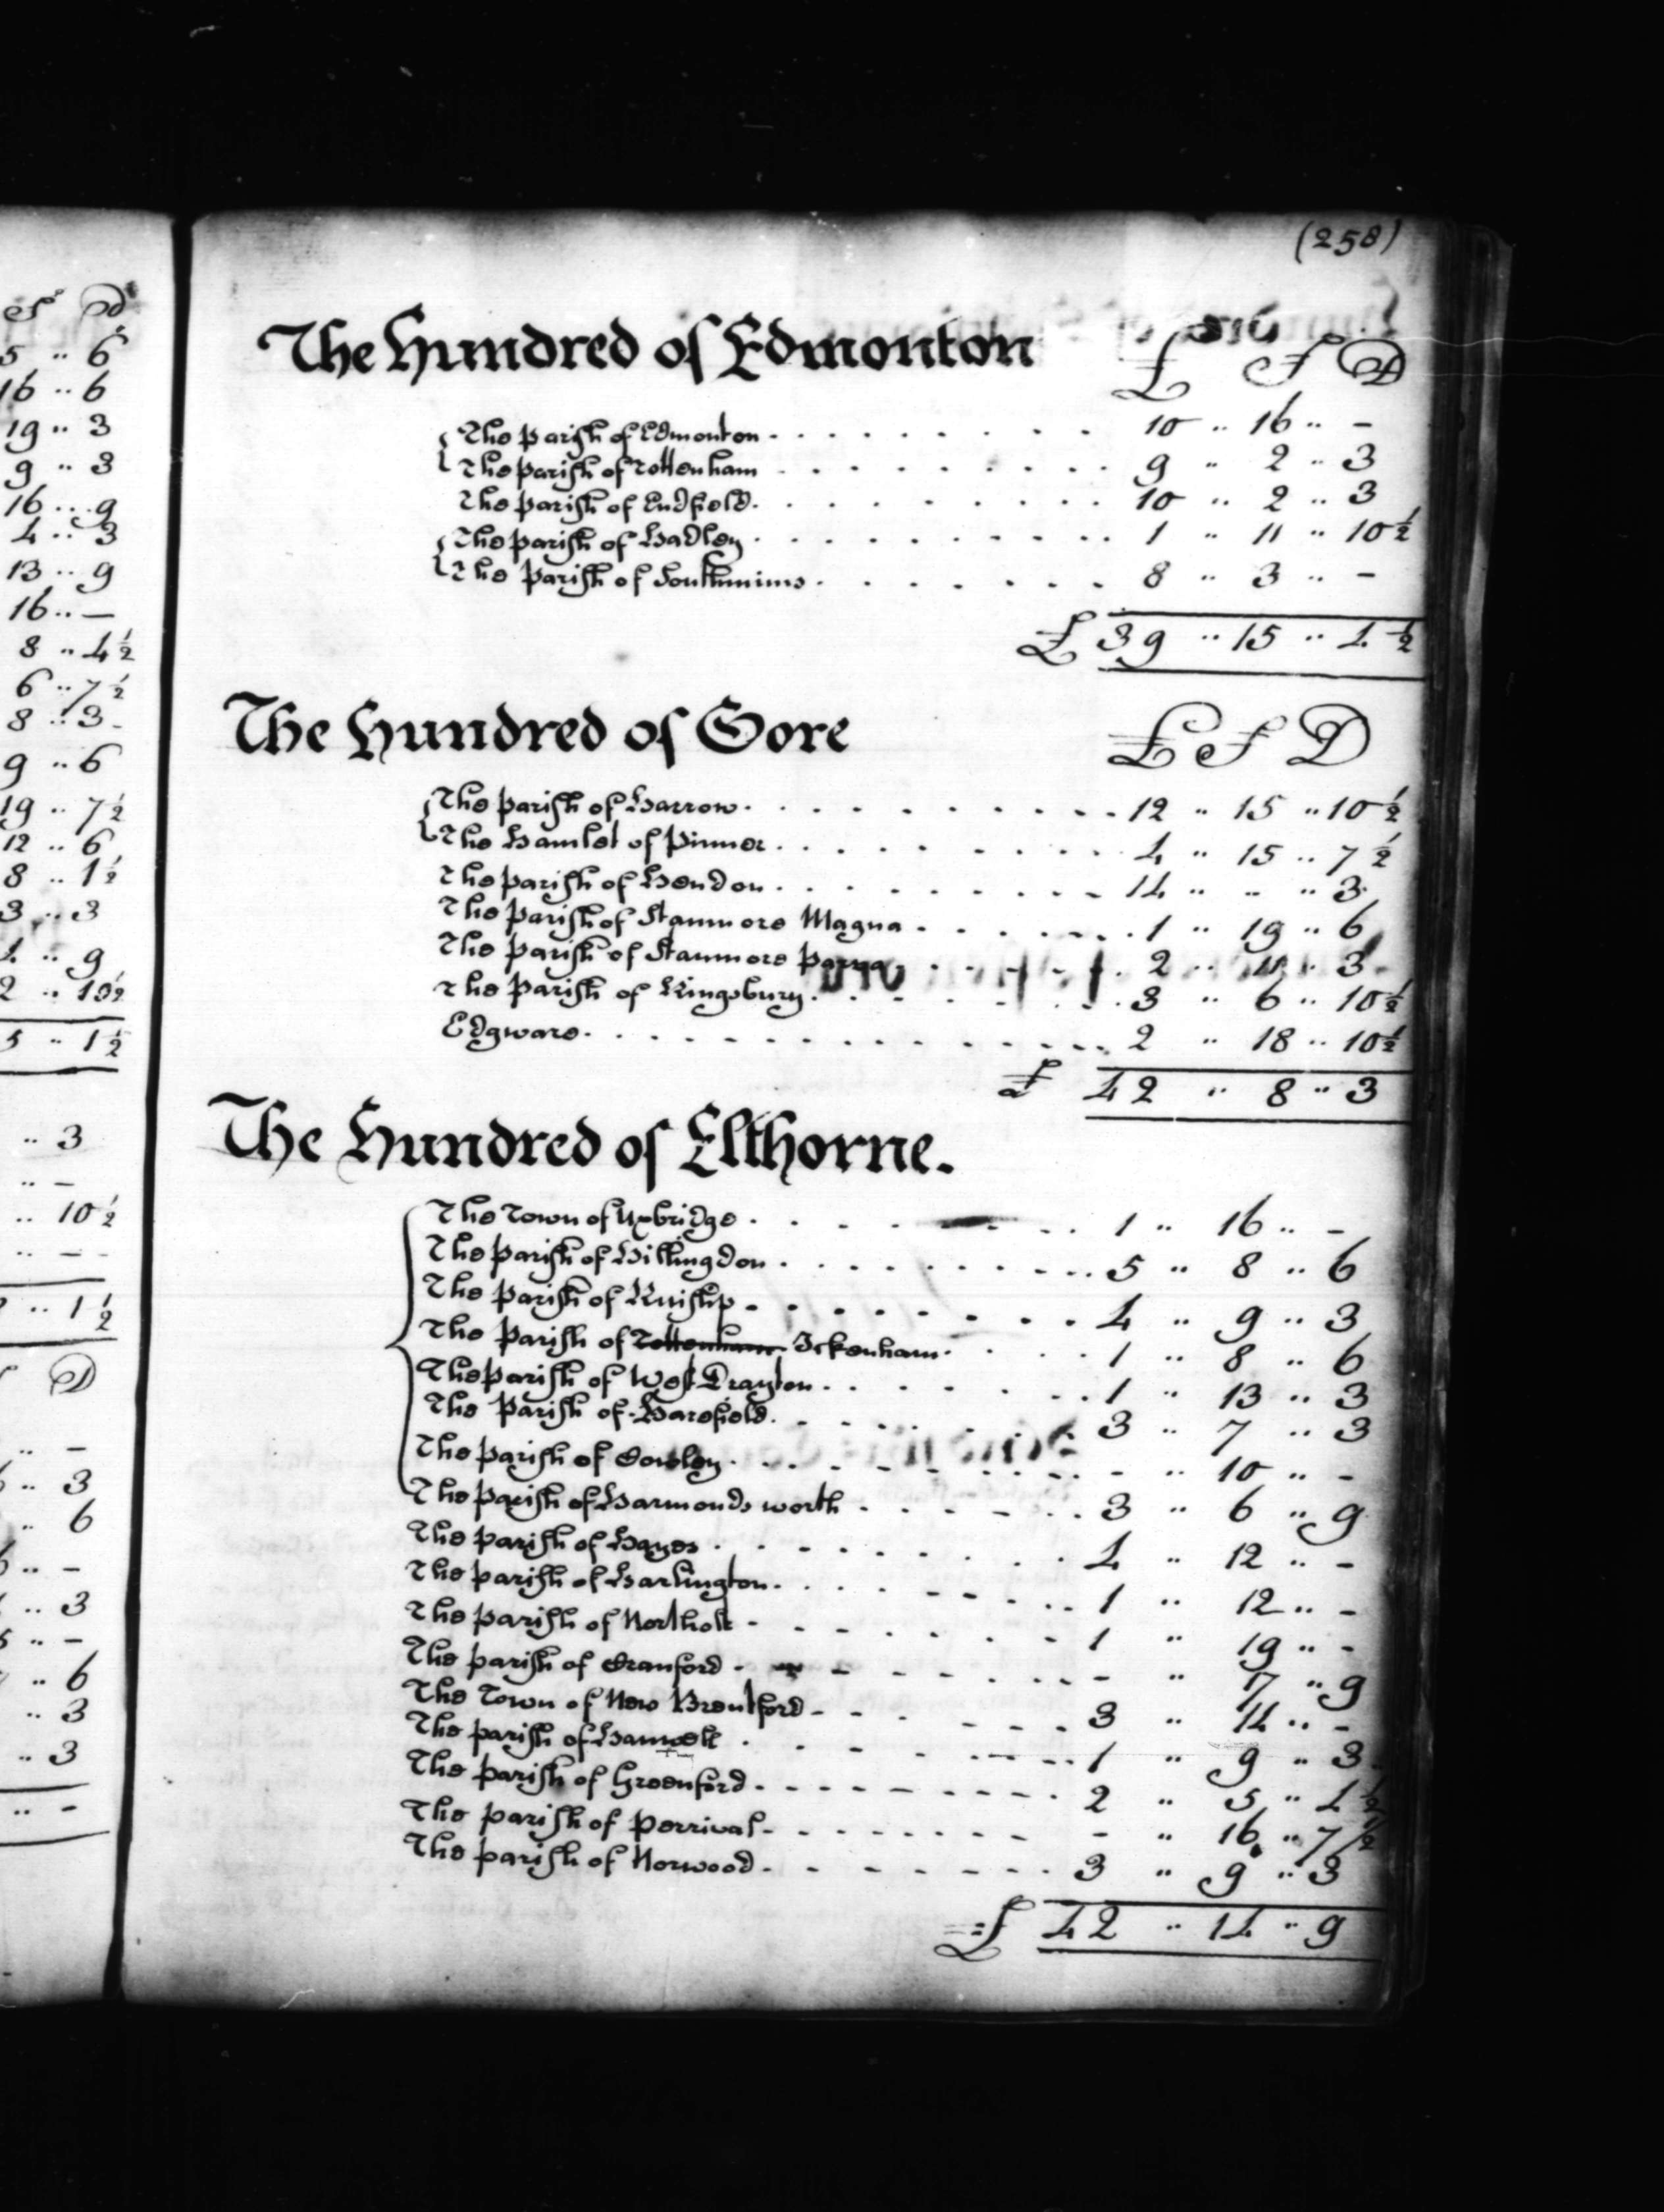 S D
5 .. 6
16 .. 6
19 .. 3
9 .. 3
16 .. 9
4 .. 3
13 .. 9
16 .. —
8 .. 4½
6 .. 7½
8 .. 3
9 .. 6
19 .. 7½
12 .. 6
8 .. 1½
3 .. 3
4 .. 9
2 .. 10½
5 .. 1½
.. 3
.. —
.. 10½
.. —
.. 1½
D
.. —
.. 3
.. 6
.. —
.. 3
.. —
.. 6
.. 3
.. 3
.. —
(258)
The Hundred of Edmonton £ S D
The Parish of Edmonton 10 .. 16 .. —
The parish of Tottenham 9 .. 2 .. 3
The parish of Endfield 10 .. 2 .. 3
The parish of Hadley 1 .. 11 .. 10½
The Parish of Southmims 8 .. 3 .. —
£ 39 .. 15 .. 4½
The Hundred of Gore £ S D
The parish of Harrow 12 .. 15 .. 10½
The Hamlet of Pinner 4 .. 15 .. 7½
The parish of Hendon 14 .. .. .. 3
The Parish of Stanmore Magna 1 .. 19 .. 6
The Parish of Stanmore Parva 2 .. 11 .. 3
The Parish of Kingsbury 3 .. 6 .. 10½
Edgware 2 .. 18 .. 10½
£ 42 .. 8 .. 3
The Hundred of Elthorne.
The Town of Uxbridge 1 .. 16 .. —
The Parish of Hillingdon 5 .. 8 .. 6
The Parish of Ruislip 4 .. 9 .. 3
The Parish of Tottenham Ickenham 1 .. 8 .. 6
The parish of West Drayton 1 .. 13 .. 3
The Parish of Harefield 3 .. 7 .. 3
The Parish of Cowley — .. 10 .. —
The Parish of Harmondsworth 3 .. 6 .. 9
The Parish of Hayes 4 .. 12 .. —
The parish of Harlington 1 .. 12 .. —
The parish of Northolt 1 .. 19 .. —
The parish of Cranford — .. 17 .. 9
The Town of New Brentford 3 .. 14 .. —
The parish of Hanwell 1 .. 9 .. 3
The parish of Greenford 2 .. 5 .. 4½
The parish of Perrival — .. 16 .. 7½
The parish of Norwood 3 .. 9 .. 3
£ 42 .. 14 .. 9